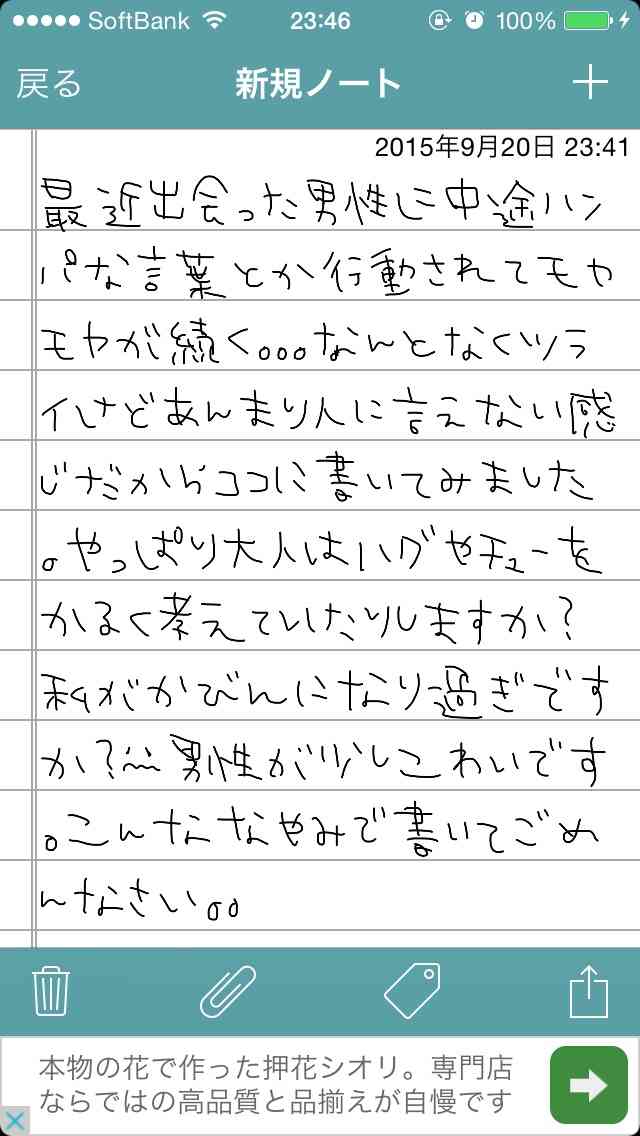 SoftBank 23:46 100%
戻る 新規ノート
2015年9月20日 23:41
最近出会った男性に中途ハン
パな言葉とか行動されてモヤ
モヤが続く。。。なんとなくツラ
イけどあんまり人に言えない感
じだからココに書いてみました
。やっぱり大人はハグやチューを
かるく考えていたりしますか?
私がかびんになり過ぎです
か?... 男性が少しこわいです
。こんなななやみで書いてごめ
んなさい。。
本物の花で作った押花シオリ。専門店
ならではの高品質と品揃えが自慢です